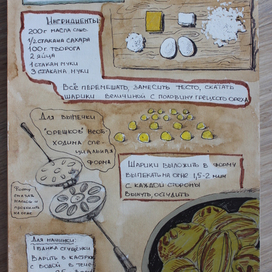 Ингредиенты:
200г масла слив.
1/2 стакана сахара
100г творога
2 яйца
1 стакан муки
3 стакана муки
Всё перемешать, замесить тесто, скатать
шарики величиной с половину грецкого ореха
Для выпечки
"орешков" необ-
ходима спе-
циальная
форма
Шарики выложить в форму
выпекать на огне 1,5-2 мин
с каждой стороны
вынуть, остудить
Для начинки:
1 банка сгущёнки
Варить в кастрюле
с водой в тече-